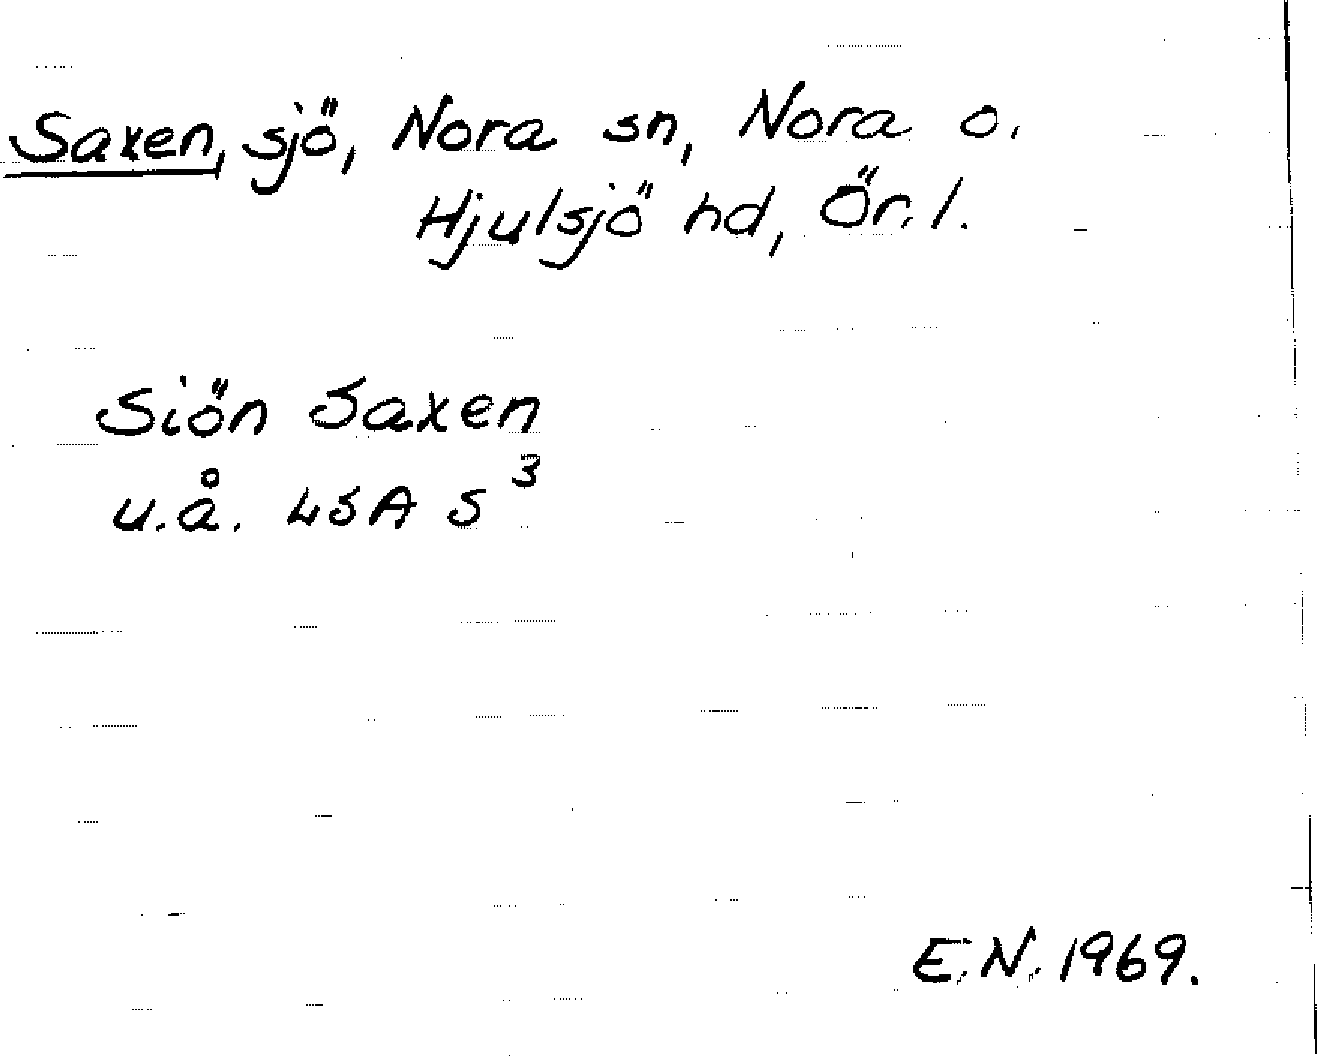 Saxen, sjö, Nora sn, Nora o.
Hjulsjö hd, Ör. l.
Siön Saxen
u.å. LSA S 3
E.N. 1969.